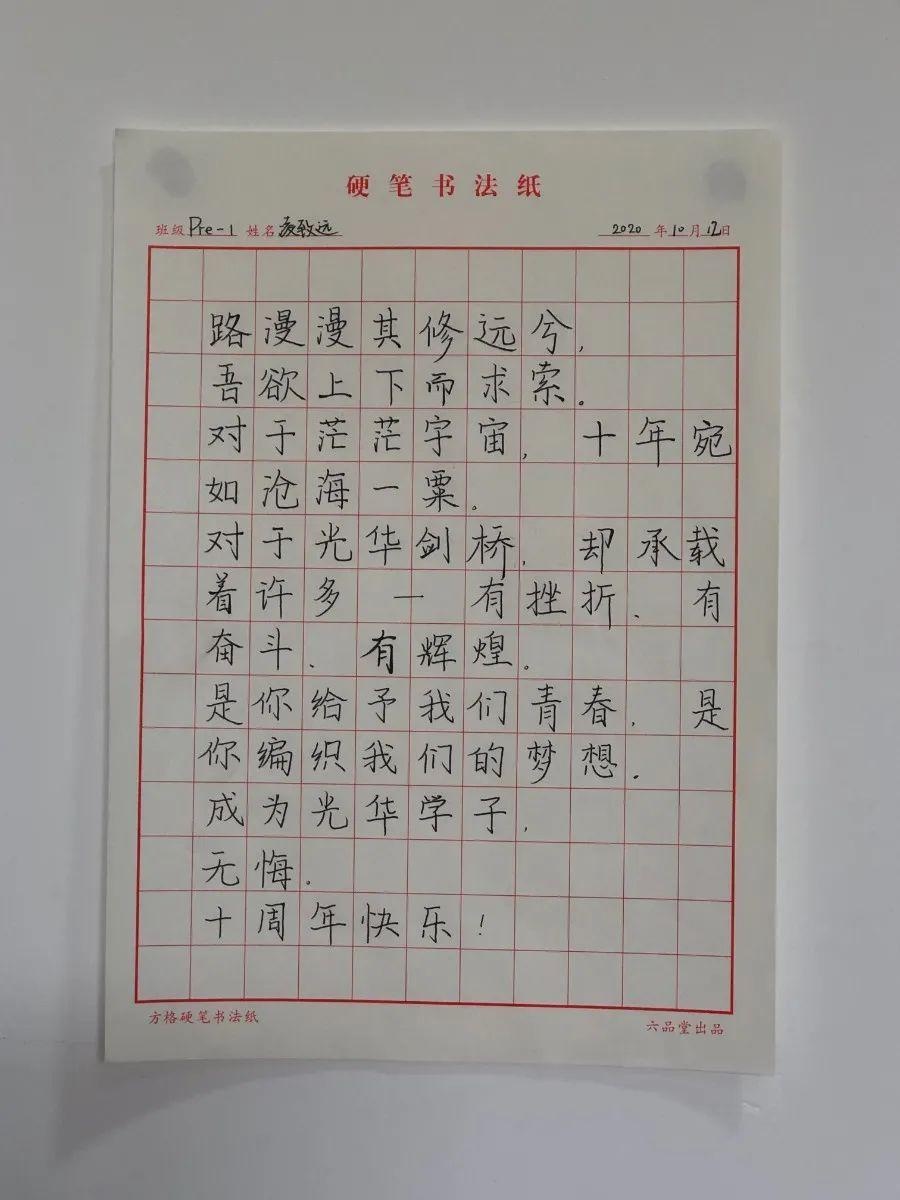 硬笔书法纸
班级 Pre-1 姓名 致远 2020 年 10 月 12 日
路漫漫其修远兮，
吾欲上下而求索。
对于茫茫宇宙，十年宛
如沧海一粟。
对于光华剑桥，却承载
着许多—有挫折、有
奋斗、有辉煌。
是你给予我们青春，是
你编织我们的梦想。
成为光华学子，
无悔。
十周年快乐！
方格硬笔书法纸 六品堂出品